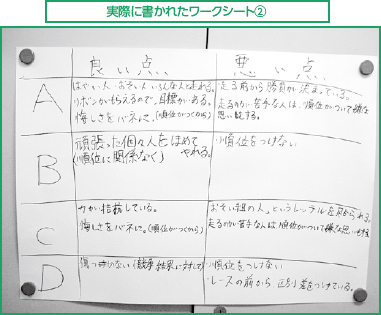 実際に書かれたワークシート②
良い点
悪い点
A
はやい人、おそい人、いろんな人と走れる。
リボンがもらえるので、目標がある。
悔しさをバネに。(順位がつくから)
走る前から勝負が決まっている。
走るのが苦手な人は、順位がついて嫌な
思いをする。
B
頑張った個々人をほめて
(順位に関係なく) やれる。
順位をつけない
C
力が拮抗している。
悔しさをバネに。(順位がつくから)
「おそい組の人」というレッテルを貼られる。
走るのが苦手な人は順位がついて嫌な思いをする
D
傷つかない(競争結果に対して)
順位をつけない
レースの前から区別、差をつけている。